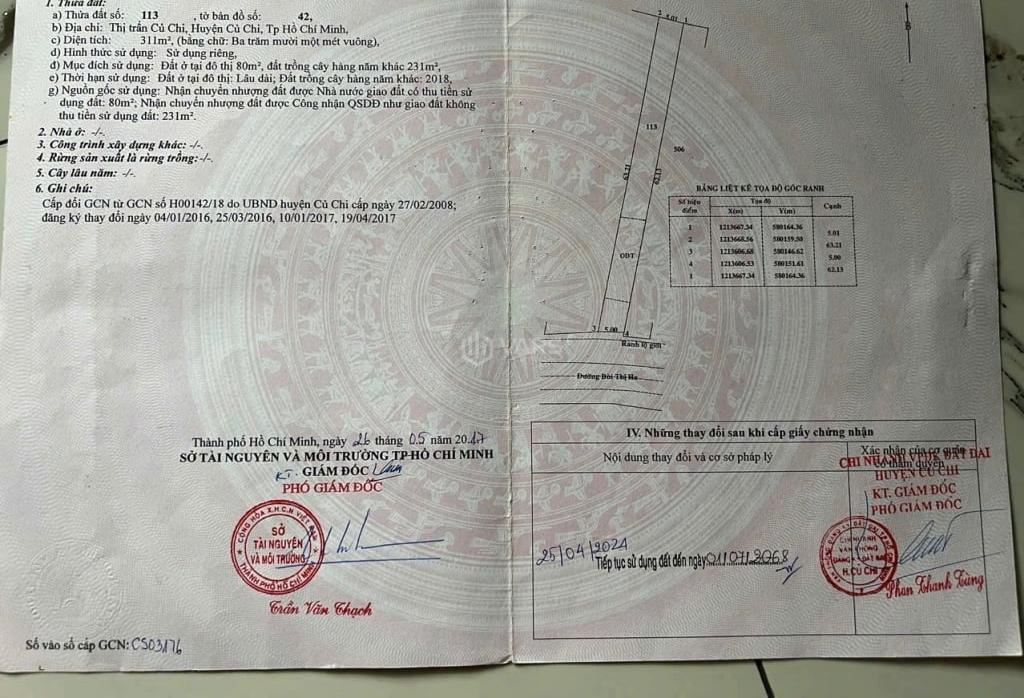 1. Thửa đất:
a) Thửa đất số: 113 , tờ bản đồ số: 42,
b) Địa chỉ: Thị trấn Củ Chi, Huyện Củ Chi, Tp Hồ Chí Minh,
c) Diện tích: 311m², (bằng chữ: Ba trăm mười một mét vuông),
d) Hình thức sử dụng: Sử dụng riêng,
đ) Mục đích sử dụng: Đất ở tại đô thị 80m², đất trồng cây hàng năm khác 231m²,
e) Thời hạn sử dụng: Đất ở tại đô thị: Lâu dài; Đất trồng cây hàng năm khác: 2018,
g) Nguồn gốc sử dụng: Nhận chuyển nhượng đất được Nhà nước giao đất có thu tiền sử
dụng đất: 80m²; Nhận chuyển nhượng đất được Công nhận QSDĐ như giao đất không
thu tiền sử dụng đất: 231m².
2. Nhà ở: -/-.
3. Công trình xây dựng khác: -/-.
4. Rừng sản xuất là rừng trồng:-/-.
5. Cây lâu năm: -/-.
6. Ghi chú:
Cấp đổi GCN từ GCN số H00142/18 do UBND huyện Củ Chi cấp ngày 27/02/2008;
đăng ký thay đổi ngày 04/01/2016, 25/03/2016, 10/01/2017, 19/04/2017
Thành phố Hồ Chí Minh, ngày 26 tháng 05 năm 2017
SỞ TÀI NGUYÊN VÀ MÔI TRƯỜNG TP HỒ CHÍ MINH
KT. GIÁM ĐỐC
PHÓ GIÁM ĐỐC
CỘNG HÒA X.H.C.N VIỆT NAM
SỞ
TÀI NGUYÊN
VÀ MÔI TRƯỜNG
THÀNH PHỐ HỒ CHÍ MINH
Trần Văn Thạch
Số vào sổ cấp GCN: CS03176
B
2 5.01 1
113
506
63.21
62.13
ODT
3 5.00 4
Ranh lộ giới
Đường Bùi Thị He
BẢNG LIỆT KÊ TỌA ĐỘ GÓC RANH
Số hiệu điểm Tọa độ Cạnh
X(m) Y(m)
1 1213667.34 580164.36
5.01
2 1213668.56 580159.50
63.21
3 1213606.68 580146.62
5.00
4 1213606.53 580151.61
62.13
1 1213667.34 580164.36
IV. Những thay đổi sau khi cấp giấy chứng nhận
Nội dung thay đổi và cơ sở pháp lý
Xác nhận của cơ quan
có thẩm quyền
CHI NHÁNH VPĐK ĐẤT ĐAI
HUYỆN CỦ CHI
KT. GIÁM ĐỐC
PHÓ GIÁM ĐỐC
25/04/2024
Tiếp tục sử dụng đất đến ngày 01/07/2068
CHI NHÁNH
VĂN PHÒNG
ĐĂNG KÝ ĐẤT ĐAI
H.CỦ CHI
Phan Thanh Tùng